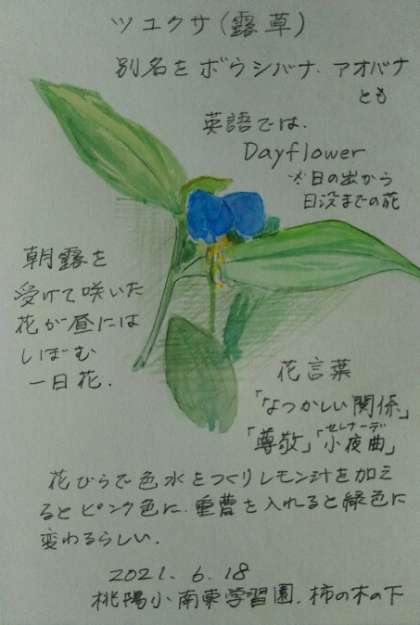 ツユクサ(露草)
別名をボウシバナ、アオバナ
とも
英語では、
Dayflower
※日の出から
日没までの花
朝露を
受けて咲いた
花が昼には
しぼむ
一日花.
花言葉
「なつかしい関係」
「尊敬」「小夜曲」
セレナーデ
花びらで色水をつくりレモン汁を加え
るとピンク色に、重曹を入れると緑色に
変わるらしい.
2021.6.18
桃陽小南東学習園、柿の木の下